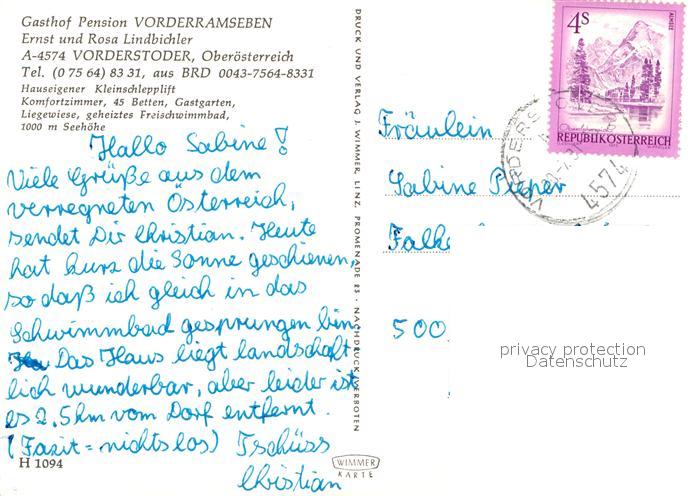 Gasthof Pension VORDERRAMSEBEN
Ernst und Rosa Lindbichler
A-4574 VORDERSTODER, Oberösterreich
Tel. (0 75 64) 83 31, aus BRD 0043-7564-8331
Hauseigener Kleinschlepplift
Komfortzimmer, 45 Betten, Gastgarten,
Liegewiese, geheiztes Freischwimmbad,
1000 m Seehöhe
Hallo Sabine!
Viele Grüße aus dem
verregneten Österreich,
sendet Dir Christian. Heute
hat kurz die Sonne geschienen,
so daß ich gleich in das
Schwimmbad gesprungen bin.
Das Haus liegt landschaft
lich wunderbar, aber leider ist
es 2,5 km vom Dorf entfernt.
(Fazit = nichts los) Tschüss
Christian
H 1094
DRUCK UND VERLAG J. WIMMER, LINZ, PROMENADE 23 · NACHDRUCK VERBOTEN
WIMMER
KARTE
4S
ALMSEE
REPUBLIK ÖSTERREICH
4574
Fräulein
Sabine
Falke
500
privacy protection
Datenschutz